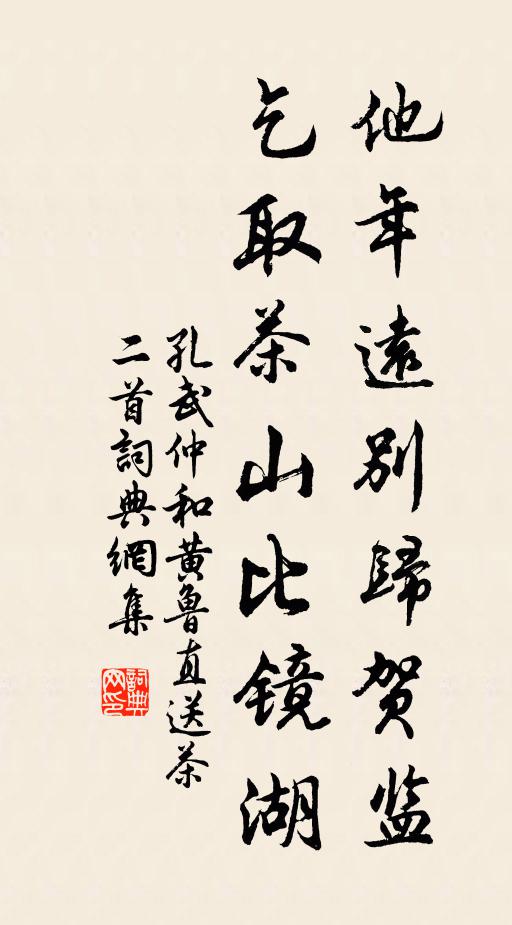 他年遠別歸贺监
乞取茶山比镜湖
孔武仲和黄魯直送茶
二首詞典網集
詞典网印